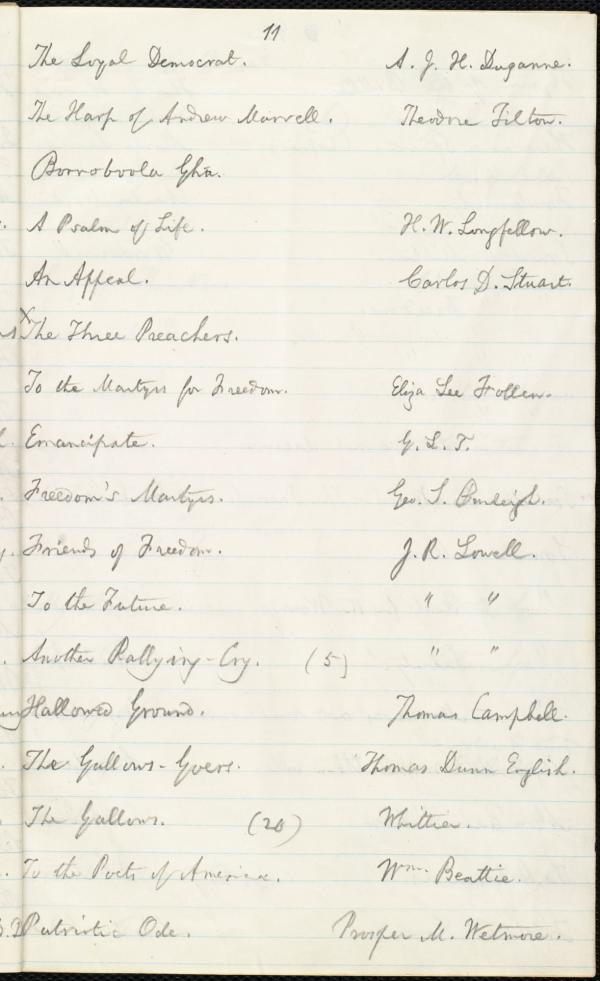 11
The Loyal Democrat. A. J. H. Duganne.
The Harp of Andrew Marvell. Theodore Tilton.
Borroboola Gha.
A Psalm of Life. H. W. Longfellow.
An Appeal. Carlos D. Stuart.
x The Three Preachers.
To the Martyrs for Freedom. Eliza Lee Follen.
Emancipate. G. L. T.
Freedom's Martyrs. Geo. S. Burleigh.
Friends of Freedom. J. R. Lowell.
To the Future. " "
Another Rallying-Cry. (5) " "
Hallowed Ground. Thomas Campbell.
The Gallows-Goers. Thomas Dunn English.
The Gallows. (20) Whittier.
To the Poets of America. Wm. Beattie.
Patriotic Ode. Prosper M. Wetmore.